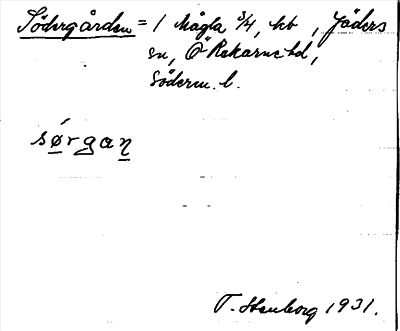 Södergården = 1 Mågla 3/4, kb, Jäders
sn, Ö Rekarne hd,
Söderm. l.
sǿrgaṇ
T. Stenborg 1931.